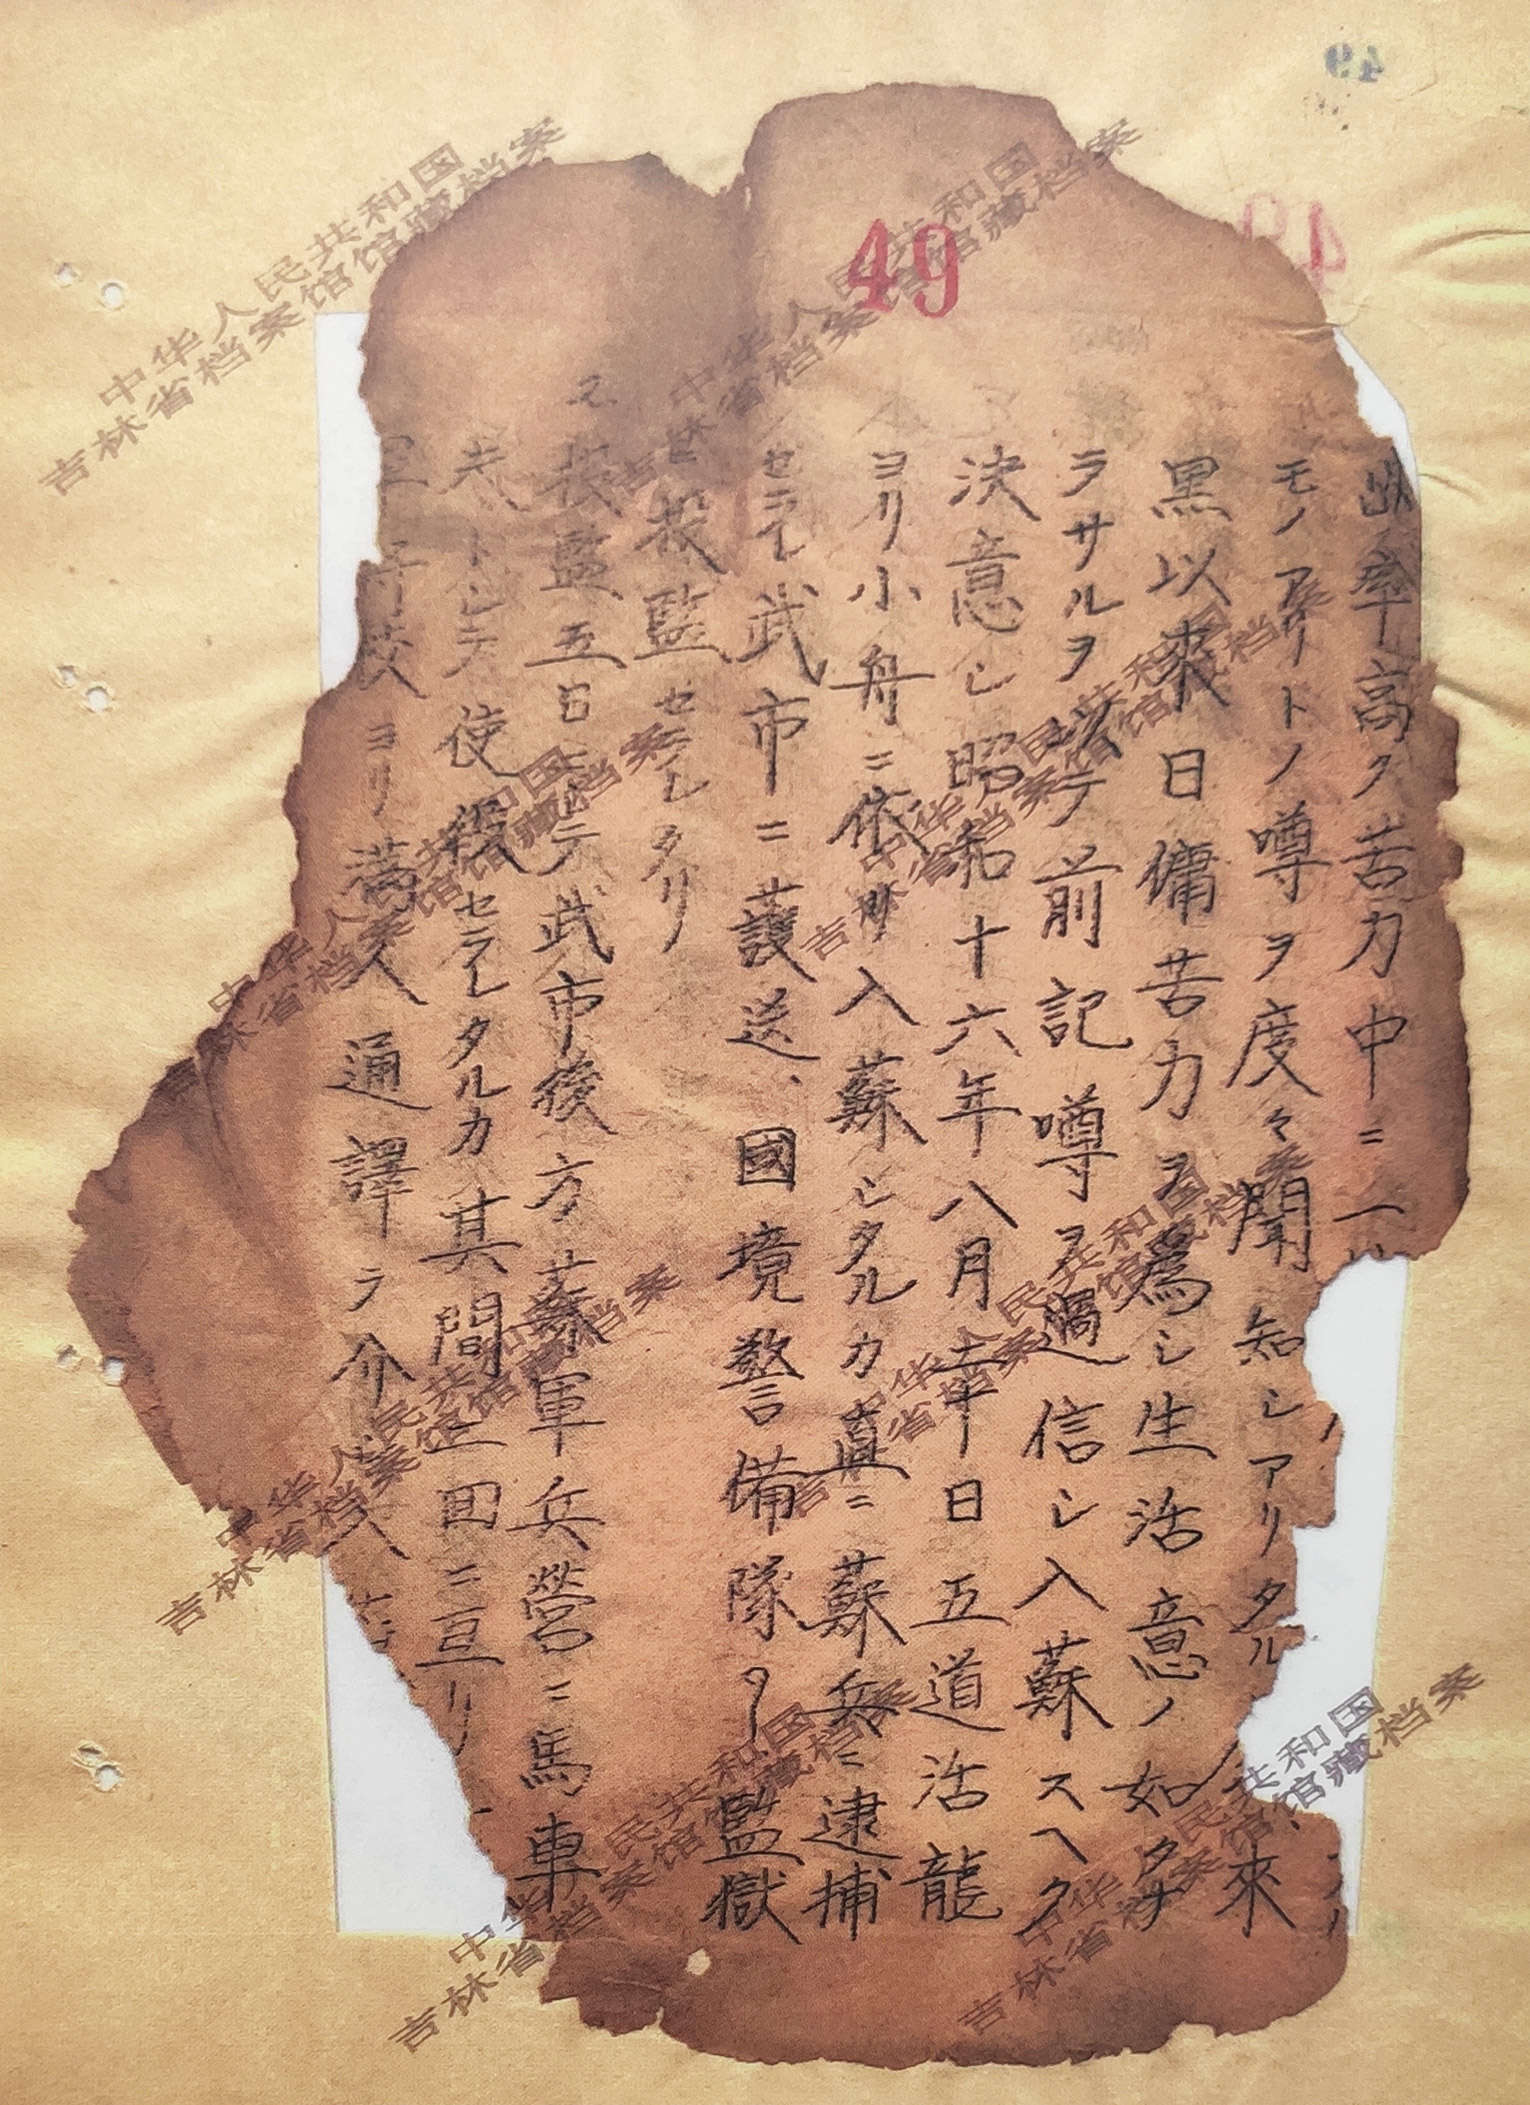 49
率高ク苦力中ニ
モノアリトノ噂ヲ度々聞知シアリタル 來
黒以來日傭苦力ヲ爲シ生活意ノ如クナ
ラサルヲ以テ前記噂ヲ過信シ入蘇スヘク
決意シ昭和十六年八月二十日五道活龍
ヨリ小舟ニ依リ入蘇シタルカ直ニ蘇兵ニ逮捕
セラレ武市ニ護送、國境警備隊ノ監獄
ニ投監セラレタリ
投監五日ニシテ武市後方蘇軍兵營ニ馬車
夫トシテ使役セラレタルカ其間三回ニ亘リ
ヨリ満人通譯ヲ介シ
中华人民共和国
吉林省档案馆馆藏档案